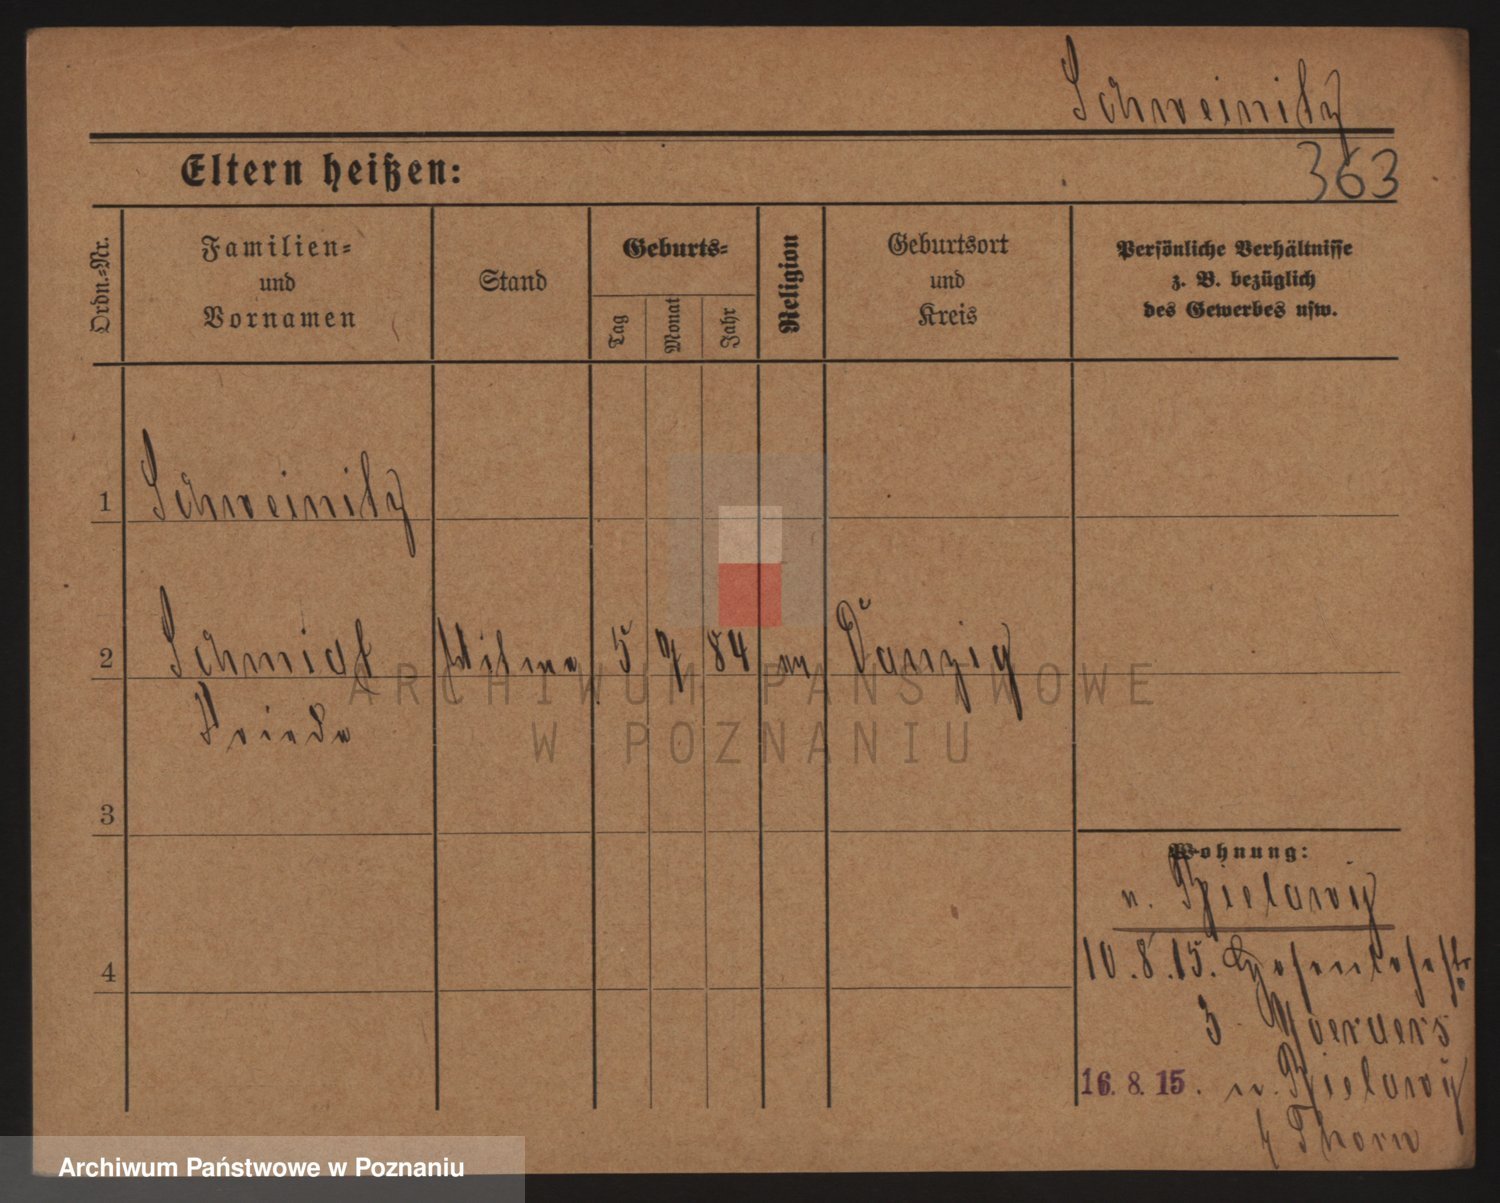 Schweinitz
Eltern heißen:
363
Ordn.-Nr.
Familien-
und
Vornamen
Stand
Geburts-
Tag
Monat
Jahr
Religion
Geburtsort
und
Kreis
Persönliche Verhältnisse
z. B. bezüglich
des Gewerbes usw.
1 Schweinitz
2 Schmidt Witwe 5 9 84 ev Danzig
Frieda
ARCHIWUM PAŃSTWOWE
W POZNANIU
3
Wohnung:
n.
10.8.15. Hohenlohestr
4
3
16.8.15. n.
Thorn
Archiwum Państwowe w Poznaniu